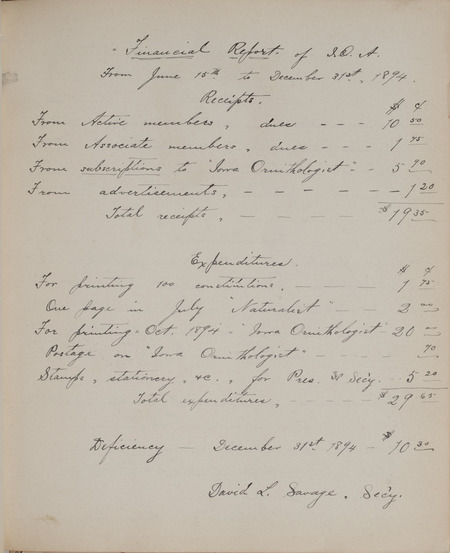 "Financial Report" of I.O.A.
From June 15th to December 31st, 1894.
Receipts.
$ ¢
From Active members, dues - - - 10 50
From Associate members, dues - - - 1 75
From subscriptions to "Iowa Ornithologist" - - 5 90
From advertisements, - - - - - - 1 20
Total receipts, - - - - $19 35
Expenditures.
$ ¢
For printing 100 constitutions, - - - - 1 75
One page in July "Naturalist" - - - 2 00
For printing Oct. 1894 - "Iowa Ornithologist" - 20 00
Postage on "Iowa Ornithologist" - - - - 70
Stamps, stationery, &c., for Pres. & Sec'y. - - 5 20
Total expenditures, - - - - - $29 65
Deficiency - December 31st 1894 - $10 30
David L. Savage, Sec'y.